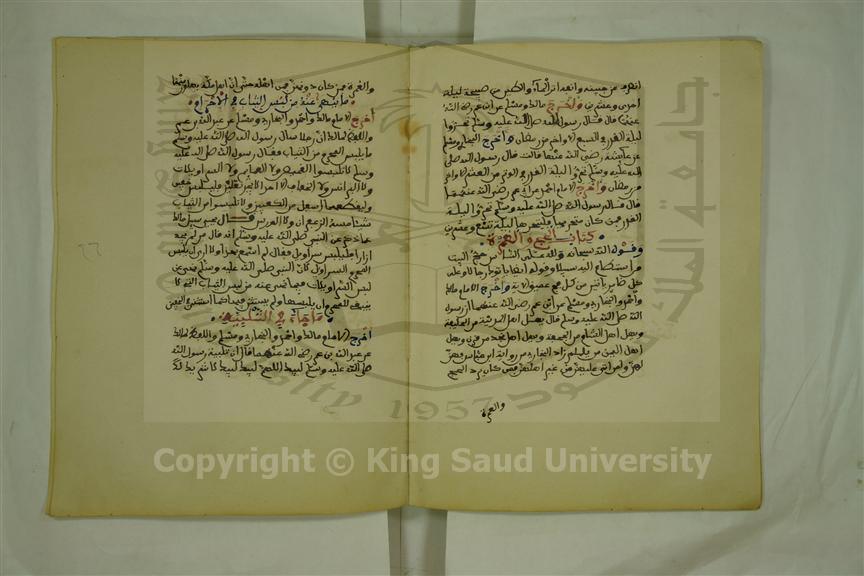 انفه وجبينه وانعد اثر الماء والطين من صبيحة ليلة
احدى وعشرين واخرج مالك ومسلم عن ابن عمر رضي الله
عنهما قال قال رسول الله صلى الله عليه وسلم تحروا
ليلة القدر في السبع الاواخر من رمضان واخرج البخاري ومسلم
عن عائشة رضي الله عنها قالت قال رسول الله صلى
الله عليه وسلم تحروا ليلة القدر في الوتر من العشر الاواخر
من رمضان واخرج الامام احمد عن ابن عمر رضي الله عنهما
قال قال رسول الله صلى الله عليه وسلم تحروا ليلة
القدر فمن كان متحريها فليتحرها ليلة سبع وعشرين
كتاب الحج والعمرة
وقوله الله سبحانه ولله على الناس حج البيت
من استطاع اليه سبيلا وقوله ايضا ياتوك رجالا وعلى
كل ضامر ياتين من كل فج عميق الاية واخرج الامام مالك
واحمد والبخاري ومسلم عن ابن عمر رضي الله عنهما ان رسول
الله صلى الله عليه وسلم قال يهل اهل المدينة من الحليفة
ويهل اهل الشام من الجحفة ويهل اهل نجد من قرن ويهل
اهل اليمن من يلملم زاد البخاري من رواية ابن عباس فهن
لهن ولمن اتى عليهن من غير اهلهن فمن كان يريد الحج
والعمرة
والعمرة فمن كان دونهن فمن اهله حتى ان اهل مكة يهلون منها
ما ينهى عنه من لبس الثياب في الاحرام
اخرج الامام مالك واحمد والبخاري ومسلم عن عبد الله بن عمر
واللفظ لمالك ان رجلا سال رسول الله صلى الله عليه وسلم
ما يلبس المحرم من الثياب فقال رسول الله صلى الله عليه
وسلم لا تلبسوا القميص ولا العمايم ولا السراويلات
ولا البرانس ولا الخفاف الا احد لا يجد نعلين فليلبس خفين
وليقطعهما اسفل من الكعبين ولا تلبسوا من الثياب
شيئا مسه الزعفران ولا الورس قال يحيى سئل مالك
عما ذكر عن النبي صلى الله عليه وسلم انه قال من لم يجد
ازارا فليلبس سراويل فقال لم اسمع بهذا ولا ارى ان يلبس
المحرم السراويل لان النبي صلى الله عليه وسلم نهى عن
لبس السراويلات فيما نهى عنه من لبس الثياب التي لا
ينبغي للمحرم ان يلبسها ولم يستثن فيها كما استثنى في الخفين
ما جاء في التلبية
اخرج الامام مالك واحمد والبخاري ومسلم واللفظ لمالك
عن عبد الله بن عمر رضي الله عنهما قال ان تلبية رسول الله
صلى الله عليه وسلم لبيك اللهم لبيك لبيك لا شريك لك
جامعة الملك سعود
University 1957
Copyright © King Saud University